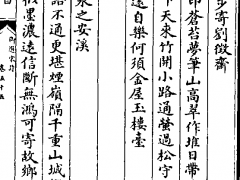 步寄劉徵齋
印蒼苔夢筆山高翠作堆日帶
下天來竹開小路通螢過松守
遠自樂何須金屋玉樓臺
泉之安溪
語不通更堪煙嶺隔千重山城
微墨濃遠信斷無鴻可寄故鄉